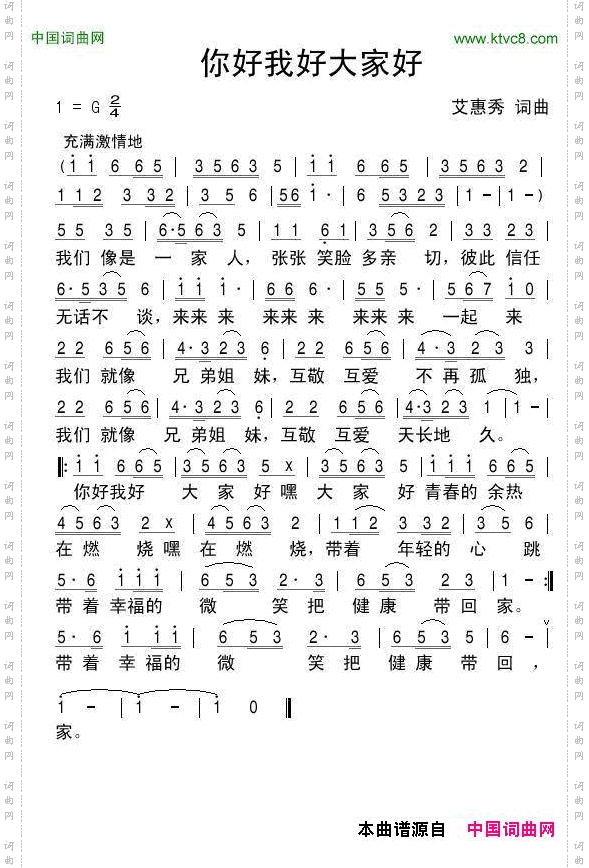 中国词曲网
www.ktvc8.com
你好我好大家好
1 = G 2/4
艾惠秀 词曲
充满激情地
(i i 6 6 5 | 3 5 6 3 5 | i i 6 6 5 | 3 5 6 3 5 |
1 1 2 3 3 2 | 3 5 6 | 5 6 i · | 6 5 3 2 3 | 1 - | 1 - )
5 5 3 5 | 6 · 5 6 3 5 | 1 1 6 1 | 3 5 6 2 | 3 3 2 3 |
我们 像是 一 家 人，张张 笑脸 多亲 切，彼此 信任
6 · 5 3 5 6 | i i i · | 6 6 6 · | 5 5 5 · | 5 6 7 i 0 |
无话不 谈，来来 来 来来 来 来来 来 一起 来
2 2 6 5 6 | 4 · 3 2 3 6 | 2 2 6 5 6 | 4 · 3 2 3 3 |
我们 就像 兄 弟姐 妹，互敬 互爱 不 再 孤 独，
2 2 6 5 6 | 4 · 3 2 3 6 | 2 2 6 5 6 | 4 · 3 2 3 1 | 1 - |
我们 就像 兄 弟姐 妹，互敬 互爱 天长地 久。
‖: i i 6 6 5 | 3 5 6 3 5 x | 3 5 6 3 5 | i i 6 6 5 |
你好我好 大 家 好嘿 大 家 好 青春的 余热
4 5 6 3 2 x | 4 5 6 3 2 | 1 1 2 3 3 2 | 3 5 6 |
在 燃 烧嘿 在 燃 烧，带着 年轻的 心 跳
5 · 6 i i i | 6 5 3 | 2 · 3 | 5 6 2 3 | 1 - :‖
带 着 幸福的 微 笑 把 健 康 带 回 家。
5 · 6 i i i | 6 5 3 | 2 · 3 | 5 6 2 3 | 6 - |
带 着 幸 福的 微 笑 把 健 康 带 回，
i - | i - | i 0 ‖
家。
本曲谱源自 中国词曲网
词曲网